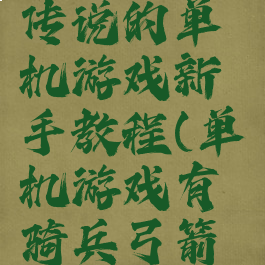 传说的单
机游戏新
手教程(单
机游戏有
骑兵弓箭